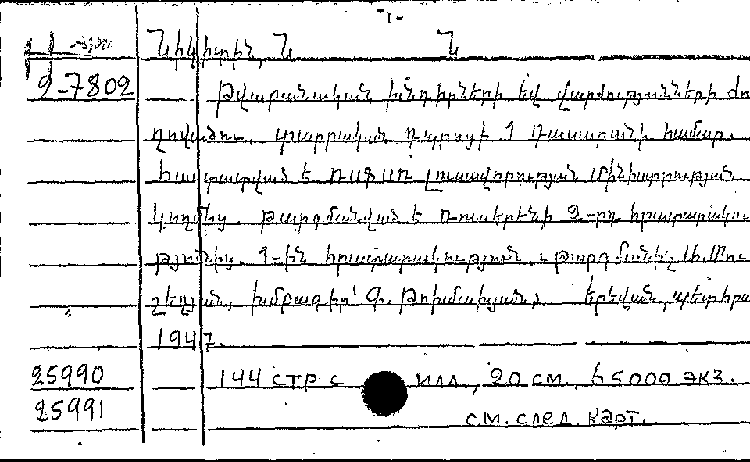 -1-
Նիկիտին, Ն Ն
9-7802 Թվաբանական խնդիրների եվ վարժությունների ժո
ղովածու. տարրական դպրոցի 1 դասարանի համար.
Հաստատված է ՌՍՖՍՌ լուսավորության մինիստրության
կողմից. Թարգմանված է ռուսերենի 2-րդ հրատարակու
թյունից. 1-ին հրատարակություն. Թարգմանիչ
խմբագիր՝ Գ. Երեվան, պետհրա
1947.
25990 144 стр с илл, 20 см, 65000 экз.
25991 см. след. карт.